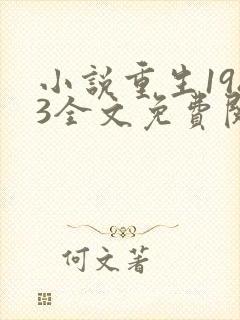 小說重生19
3全文免費
何文著